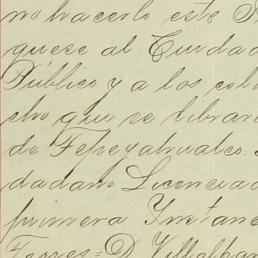 no hacerlo este
quese al Ciudad
Público y a los col
cho que se librar
de Tepeyahualco.
dadano Licenciad
primera Instan
Torres=D. Villalban